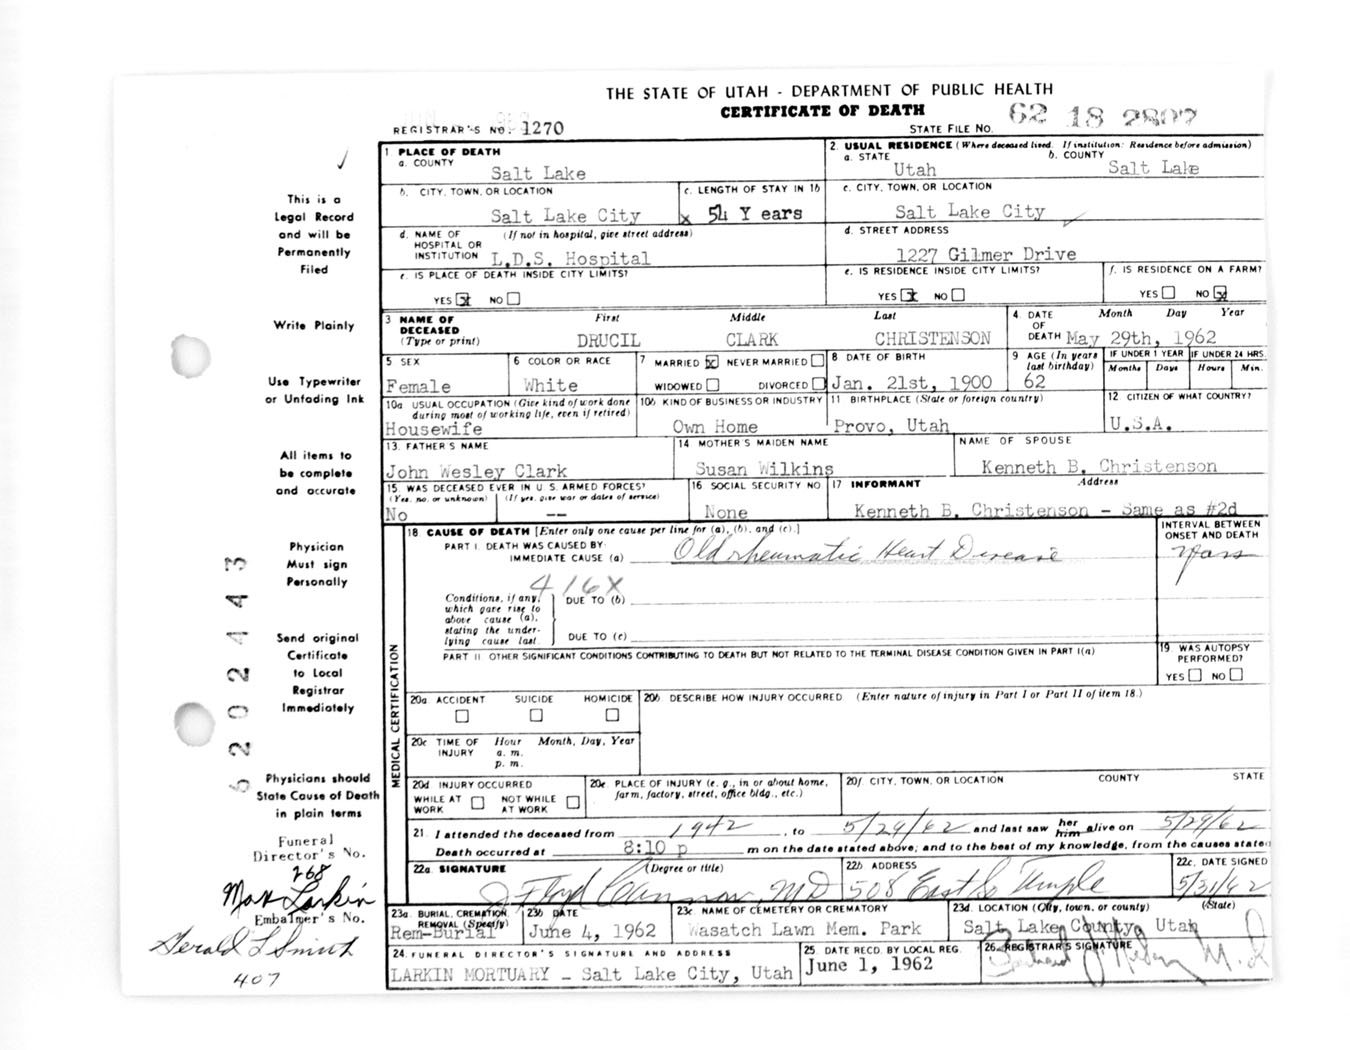 THE STATE OF UTAH - DEPARTMENT OF PUBLIC HEALTH
CERTIFICATE OF DEATH
REGISTRAR'S NO. 1270
STATE FILE NO. 62 18 2807
This is a
Legal Record
and will be
Permanently
Filed
Write Plainly
Use Typewriter
or Unfading Ink
All items to
be complete
and accurate
Physician
Must sign
Personally
Send original
Certificate
to Local
Registrar
Immediately
Physicians should
State Cause of Death
in plain terms
Funeral
Director's No.
268
Max Larkin
Embalmer's No.
Gerald L Smith
407
202443
1 PLACE OF DEATH
a. COUNTY
Salt Lake
2. USUAL RESIDENCE (Where deceased lived. If institution: Residence before admission)
a. STATE Utah b. COUNTY Salt Lake
b. CITY, TOWN, OR LOCATION
Salt Lake City
c. LENGTH OF STAY IN 1b
x 54 Y ears
c. CITY, TOWN, OR LOCATION
Salt Lake City
d. NAME OF HOSPITAL OR INSTITUTION (If not in hospital, give street address)
L.D.S. Hospital
d. STREET ADDRESS
1227 Gilmer Drive
e. IS PLACE OF DEATH INSIDE CITY LIMITS?
YES x NO
e. IS RESIDENCE INSIDE CITY LIMITS?
YES x NO
f. IS RESIDENCE ON A FARM?
YES NO x
3 NAME OF DECEASED (Type or print)
First Middle Last
DRUCIL CLARK CHRISTENSON
4. DATE OF DEATH Month Day Year
May 29th, 1962
5 SEX
Female
6 COLOR OR RACE
White
7 MARRIED x NEVER MARRIED
WIDOWED DIVORCED
8 DATE OF BIRTH
Jan. 21st, 1900
9 AGE (In years last birthday)
62
IF UNDER 1 YEAR IF UNDER 24 HRS.
Months Days Hours Min.
10a USUAL OCCUPATION (Give kind of work done during most of working life, even if retired)
Housewife
10b KIND OF BUSINESS OR INDUSTRY
Own Home
11 BIRTHPLACE (State or foreign country)
Provo, Utah
12 CITIZEN OF WHAT COUNTRY?
U.S.A.
13. FATHER'S NAME
John Wesley Clark
14 MOTHER'S MAIDEN NAME
Susan Wilkins
NAME OF SPOUSE
Kenneth B. Christenson
15. WAS DECEASED EVER IN U.S. ARMED FORCES?
(Yes, no, or unknown) (If yes, give war or dates of service)
No --
16 SOCIAL SECURITY NO.
None
17 INFORMANT Address
Kenneth B. Christenson - Same as #2d
18 CAUSE OF DEATH [Enter only one cause per line for (a), (b), and (c).]
PART I. DEATH WAS CAUSED BY:
IMMEDIATE CAUSE (a) Old rheumatic Heart Disease
INTERVAL BETWEEN ONSET AND DEATH
years
416X
Conditions, if any, which gave rise to above cause (a), stating the underlying cause last.
DUE TO (b)
DUE TO (c)
PART II. OTHER SIGNIFICANT CONDITIONS CONTRIBUTING TO DEATH BUT NOT RELATED TO THE TERMINAL DISEASE CONDITION GIVEN IN PART I(a)
19 WAS AUTOPSY PERFORMED?
YES NO
MEDICAL CERTIFICATION
20a ACCIDENT SUICIDE HOMICIDE
20b DESCRIBE HOW INJURY OCCURRED (Enter nature of injury in Part I or Part II of item 18.)
20c TIME OF INJURY Hour Month, Day, Year
a. m.
p. m.
20d INJURY OCCURRED
WHILE AT WORK NOT WHILE AT WORK
20e. PLACE OF INJURY (e. g., in or about home, farm, factory, street, office bldg., etc.)
20f. CITY, TOWN, OR LOCATION COUNTY STATE
21. I attended the deceased from 1942, to 5/29/62 and last saw her him alive on 5/29/62
Death occurred at 8:10 p m on the date stated above; and to the best of my knowledge, from the causes stated
22a. SIGNATURE (Degree or title)
J Floyd Cannon, MD
22b ADDRESS
508 East So Temple
22c. DATE SIGNED
5/31/62
23a. BURIAL, CREMATION, REMOVAL (Specify)
Rem-Burial
23b DATE
June 4, 1962
23c NAME OF CEMETERY OR CREMATORY
Wasatch Lawn Mem. Park
23d. LOCATION (City, town, or county) (State)
Salt Lake County, Utah
24. FUNERAL DIRECTOR'S SIGNATURE AND ADDRESS
LARKIN MORTUARY - Salt Lake City, Utah
25. DATE RECD. BY LOCAL REG.
June 1, 1962
26. REGISTRAR'S SIGNATURE